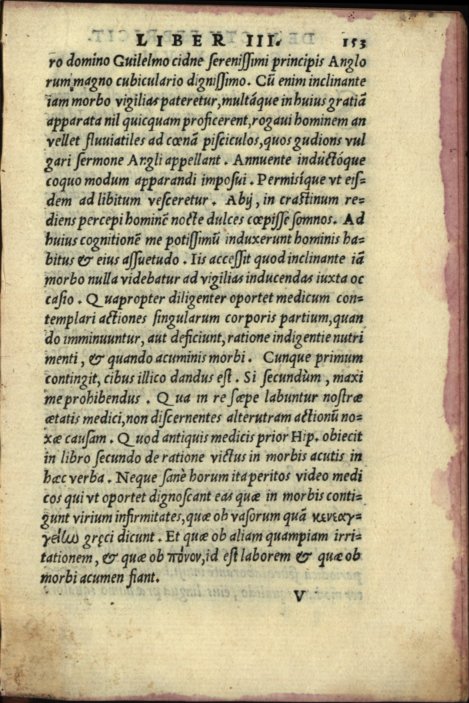 LIBER III. 153
ro domino Guilelmo cidne serenissimi principis Anglo
rum magno cubiculario dignissimo. Cũ enim inclinante
iam morbo vigilias pateretur, multáque in huius gratiã
apparata nil quicquam proficerent, rogaui hominem an
vellet fluuiatiles ad cœnã pisciculos, quos gudions vul
gari sermone Angli appellant. Annuente inductóque
coquo modum apparandi imposui. Permisíque vt eis=
dem ad libitum vesceretur. Abij, in crastinum re=
diens percepi hominẽ nocte dulces cœpisse somnos. Ad
huius cognitionẽ me potissimũ induxerunt hominis ha=
bitus & eius assuetudo. Iis accessit quod inclinante iã
morbo nulla videbatur ad vigilias inducendas iuxta oc
casio. Quapropter diligenter oportet medicum con=
templari actiones singularum corporis partium, quan
do imminuuntur, aut deficiunt, ratione indigentie nutri
menti, & quando acuminis morbi. Cunque primum
contingit, cibus illico dandus est. Si secundùm, maxi
me prohibendus. Qua in re sæpe labuntur nostræ
ætatis medici, non discernentes alterutram actionũ no=
xæ causam. Quod antiquis medicis prior Hip. obiecit
in libro secundo de ratione victus in morbis acutis in
hæc verba. Neque sanè horum ita peritos video medi
cos qui vt oportet dignoscant eas quæ in morbis conti=
gunt virium infirmitates, quæ ob vasorum quã κενεαγ=
γείαν gręci dicunt. Et quæ ob aliam quampiam irri=
tationem, & quæ ob πόνον, id est laborem & quæ ob
morbi acumen fiant.
V